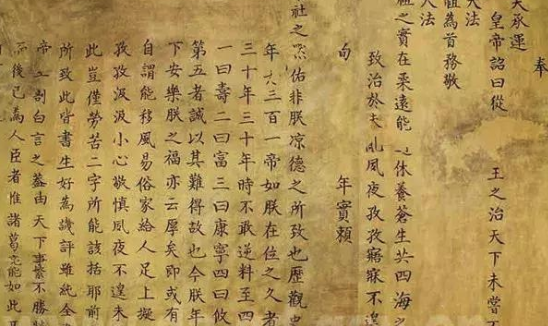 奉
天承運
皇帝詔曰從 王之治天下未嘗不
天法
祖為首務敬
天法
祖之實在柔遠能 之休養蒼生共四海之
致治於未亂夙夜孜孜寤寐不遑
旬 年實賴
社之 佑非朕凉德之所致也歷觀史
年 三百一帝如朕在位之久者
三十年三十年時不敢逆料至四
一曰壽二曰富三曰康寧四曰攸
第五者誠以其難得故也今朕年
下安樂朕之福亦云厚矣即或有
自謂能移風易俗家給人足上擬
孜孜汲汲小心敬慎夙夜不遑未
此豈僅勞苦二字所能該括耶前
所致此皆書生好為譏評雖純全
帝王剖白言之蓋由天下事繁不勝
而後已為人臣者惟諸葛亮能如此